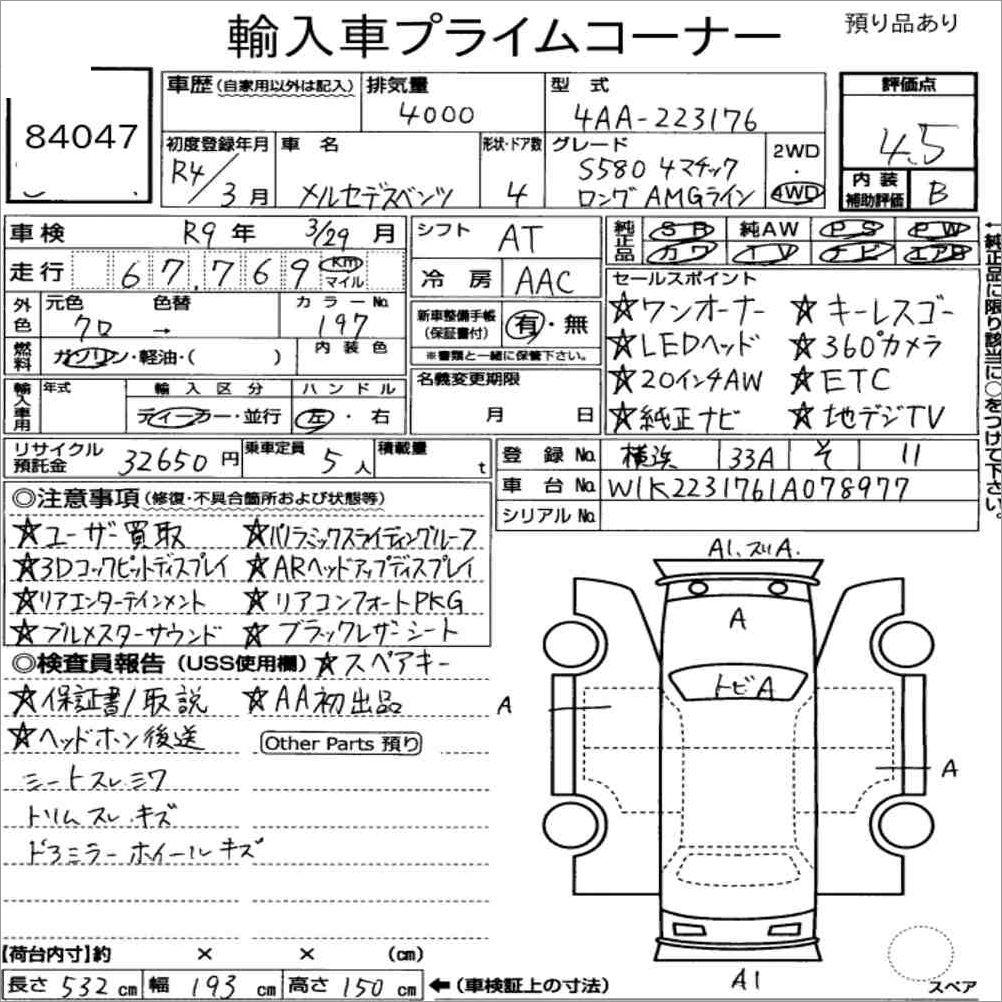 輸入車プライムコーナー
預り品あり
84047
車歴 (自家用以外は記入)
排気量
4000
型式
4AA-223176
評価点
4.5
内装補助評価
B
初度登録年月
R4/3月
車名
メルセデスベンツ
形状・ドア数
4
グレード
S580 4マチック
ロング AMGライン
2WD
4WD
車検 R9年 3/29月
走行 67,769 Km マイル
シフト AT
冷房 AAC
純正品 SR 純AW PS PW
カワ TV ナビ エアB
←純正品に限り該当に○をつけて下さい。
外色 元色 色替 カラーNo.
クロ → 197
燃料 ガソリン・軽油・( ) 内装色
新車整備手帳(保証書付) 有・無
※書類と一緒に保管下さい。
セールスポイント
☆ワンオーナー ☆キーレスゴー
☆LEDヘッド ☆360°カメラ
☆20インチAW ☆ETC
☆純正ナビ ☆地デジTV
輸入車用 年式 輸入区分 ハンドル
ディーラー・並行 左・右
名義変更期限
月 日
リサイクル預託金 32650円
乗車定員 5人
積載量 t
登録No. 横浜 33A そ 11
車台No. W1K2231761A078977
シリアルNo.
◎注意事項 (修復・不具合箇所および状態等)
☆ユーザー買取 ☆パノラミックスライディングルーフ
☆3Dコックピットディスプレイ ☆ARヘッドアップディスプレイ
☆リアエンターテインメント ☆リアコンフォートPKG
☆ブルメスターサウンド ☆ブラックレザーシート
◎検査員報告 (USS使用欄) ☆スペアキー
☆保証書/取説 ☆AA初出品
☆ヘッドホン後送
Other Parts 預り
シートスレシワ
トリムスレ.キズ
ドアミラーホイールキズ
A1.スリA.
A
トビA
A
A
A1
スペア
【荷台内寸】約 × × (cm)
長さ 532cm 幅 193cm 高さ 150cm ←(車検証上の寸法)